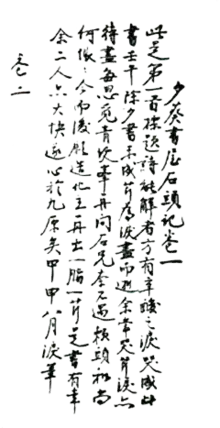 夕葵書屋石頭記卷一
此是第一首標題詩能解者方有辛酸之淚哭成此
書壬午除夕書未成芹為淚盡而逝余常哭芹淚亦
待盡每思覓青埂峯再問石兄奈不遇癩頭和尚
何悵悵今而後願造化主再出一脂一芹是書有幸
余二人亦大快遂心於九原矣甲申八月淚筆
卷二